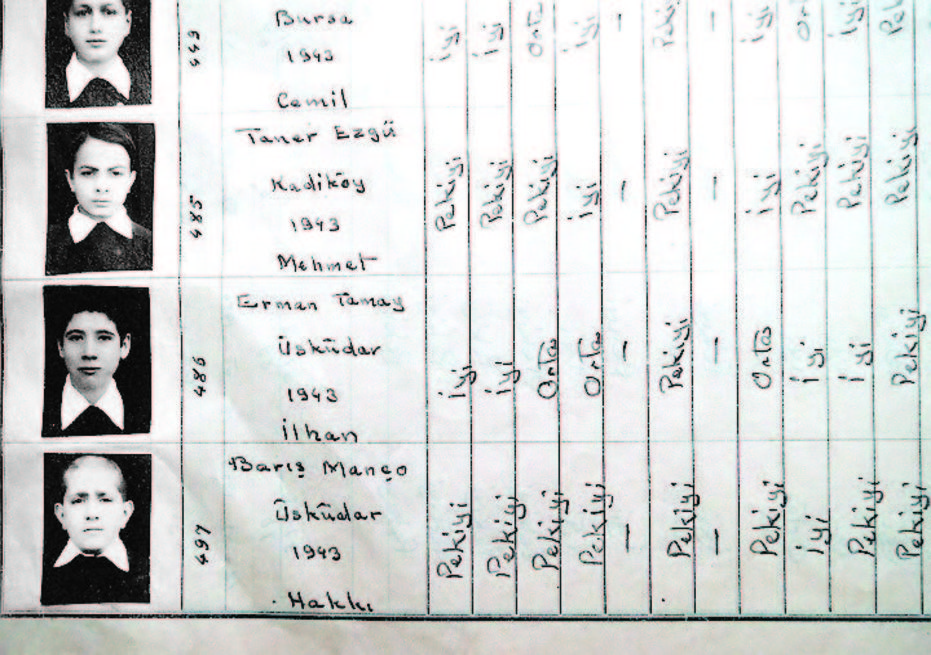 Bursa
1943
Cemil
İyi
İyi
Orta
İyi
—
—
İyi
İyi
485
Taner Ezgü
Kadiköy
1943
Mehmet
Pekiyi
Pekiyi
Pekiyi
İyi
—
Pekiyi
—
İyi
Pekiyi
Pekiyi
Pekiyi
486
Erman Tamay
Üsküdar
1943
İlhan
İyi
İyi
Orta
Orta
—
Pekiyi
—
Orta
İyi
İyi
Pekiyi
497
Barış Manço
Üsküdar
1943
Hakkı
Pekiyi
Pekiyi
Pekiyi
Pekiyi
—
Pekiyi
—
Pekiyi
İyi
Pekiyi
Pekiyi